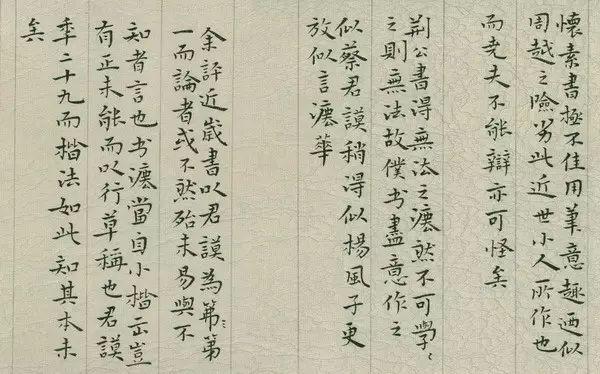 懷素書極不佳用筆意趣迺似
周越之險劣此近世小人所作也
而堯夫不能辯亦可怪矣
荊公書得無法之灋然不可學〻
之則無法故僕书盡意作之
似蔡君謨稍得似楊風子更
放似言灋華
余評近歲書以君謨為第第
一而論者或不然殆未易與不
知者言也书灋當自小楷出豈
有正未能而以行草稱也君謨
年二十九而楷法如此知其本末
矣